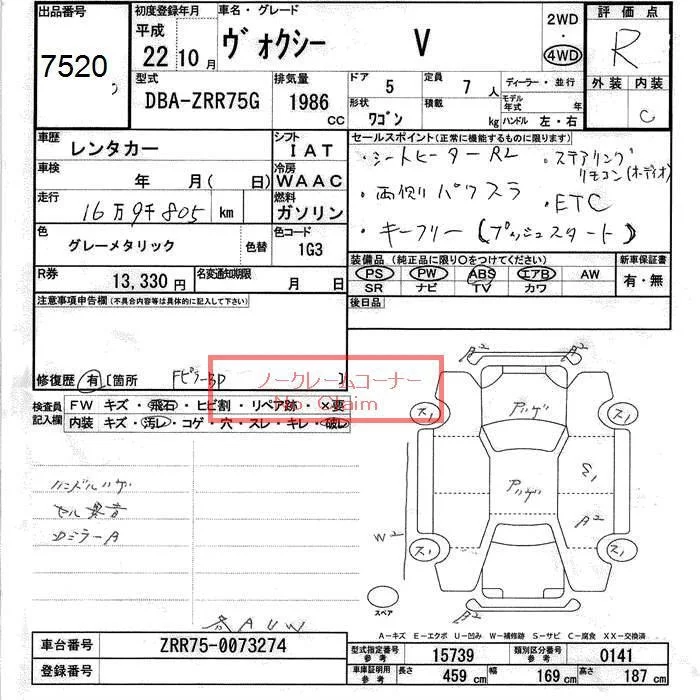 出品番号
7520
初度登録年月
平成
22 10月
車名・グレード
ヴォクシー V
2WD
・
4WD
評価点
R
外装 内装
C
型式
DBA-ZRR75G
排気量
1986 CC
ドア 5
定員 7 人
ディーラー・並行
形状 ワゴン
積載 kg
モデル年式 年
ハンドル 左・右
車歴
レンタカー
シフト
IAT
車検
年 月( 日)
冷房
WAAC
走行
16万9千805 km
燃料
ガソリン
色
グレーメタリック
色替
色コード
1G3
R券
13,330 円
名変通知期限
月 日
セールスポイント(正常に機能するものに限ります)
・シートヒーターRL ・ステアリングリモコン(オーディオ)
・両側パワスラ ・ETC
・キーフリー(プッシュスタート)
装備品(純正品に限り○をつけてください)
PS PW ABS エアB AW
SR ナビ TV カワ
新車保証書
有・無
後日品
注意事項申告欄(不具合内容等は具体的に記入して下さい)
修復歴 有 [箇所 Fピラー3D ]
ノークレームコーナー
No Claim
検査員記入欄
FW キズ・飛石・ヒビ割・リペア跡・×要
内装 キズ・汚レ・コゲ・穴・スレ・キレ・破レ
ハンドルハゲ
セル異音
DミラーA
各AUW
A2 A2
ス1 アハゲ ス1
アハゲ
S1
A2
W2
ス1 ス1
スペア
B2
A-キズ E-エクボ U-凹み W-補修跡 S-サビ C-腐食 XX-交換済
車台番号
ZRR75-0073274
登録番号
型式指定番号 参考
15739
類別区分番号 参考
0141
車庫証明用 参考
長さ 459 cm
幅 169 cm
高さ 187 cm